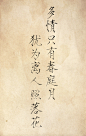 多情只有春庭月
猶為离人照落花